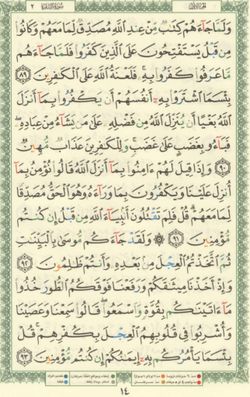 وَلَمَّا جَآءَهُمْ كِتَٰبٌ مِّنْ عِندِ ٱللَّهِ مُصَدِّقٌ لِّمَا مَعَهُمْ وَكَانُوا۟
مِن قَبْلُ يَسْتَفْتِحُونَ عَلَى ٱلَّذِينَ كَفَرُوا۟ فَلَمَّا جَآءَهُم
مَّا عَرَفُوا۟ كَفَرُوا۟ بِهِۦ فَلَعْنَةُ ٱللَّهِ عَلَى ٱلْكَٰفِرِينَ ٨٩
بِئْسَمَا ٱشْتَرَوْا۟ بِهِۦٓ أَنفُسَهُمْ أَن يَكْفُرُوا۟ بِمَآ أَنزَلَ
ٱللَّهُ بَغْيًا أَن يُنَزِّلَ ٱللَّهُ مِن فَضْلِهِۦ عَلَىٰ مَن يَشَآءُ مِنْ عِبَادِهِۦ
فَبَآءُو بِغَضَبٍ عَلَىٰ غَضَبٍ وَلِلْكَٰفِرِينَ عَذَابٌ مُّهِينٌ
٩٠ وَإِذَا قِيلَ لَهُمْ ءَامِنُوا۟ بِمَآ أَنزَلَ ٱللَّهُ قَالُوا۟ نُؤْمِنُ بِمَآ
أُنزِلَ عَلَيْنَا وَيَكْفُرُونَ بِمَا وَرَآءَهُۥ وَهُوَ ٱلْحَقُّ مُصَدِّقًا
لِّمَا مَعَهُمْ قُلْ فَلِمَ تَقْتُلُونَ أَنۢبِيَآءَ ٱللَّهِ مِن قَبْلُ إِن كُنتُم
مُّؤْمِنِينَ ٩١ وَلَقَدْ جَآءَكُم مُّوسَىٰ بِٱلْبَيِّنَٰتِ
ثُمَّ ٱتَّخَذْتُمُ ٱلْعِجْلَ مِنۢ بَعْدِهِۦ وَأَنتُمْ ظَٰلِمُونَ ٩٢
وَإِذْ أَخَذْنَا مِيثَٰقَكُمْ وَرَفَعْنَا فَوْقَكُمُ ٱلطُّورَ خُذُوا۟
مَآ ءَاتَيْنَٰكُم بِقُوَّةٍ وَٱسْمَعُوا۟ قَالُوا۟ سَمِعْنَا وَعَصَيْنَا
وَأُشْرِبُوا۟ فِى قُلُوبِهِمُ ٱلْعِجْلَ بِكُفْرِهِمْ قُلْ
بِئْسَمَا يَأْمُرُكُم بِهِۦٓ إِيمَٰنُكُمْ إِن كُنتُم مُّؤْمِنِينَ ٩٣
١٤